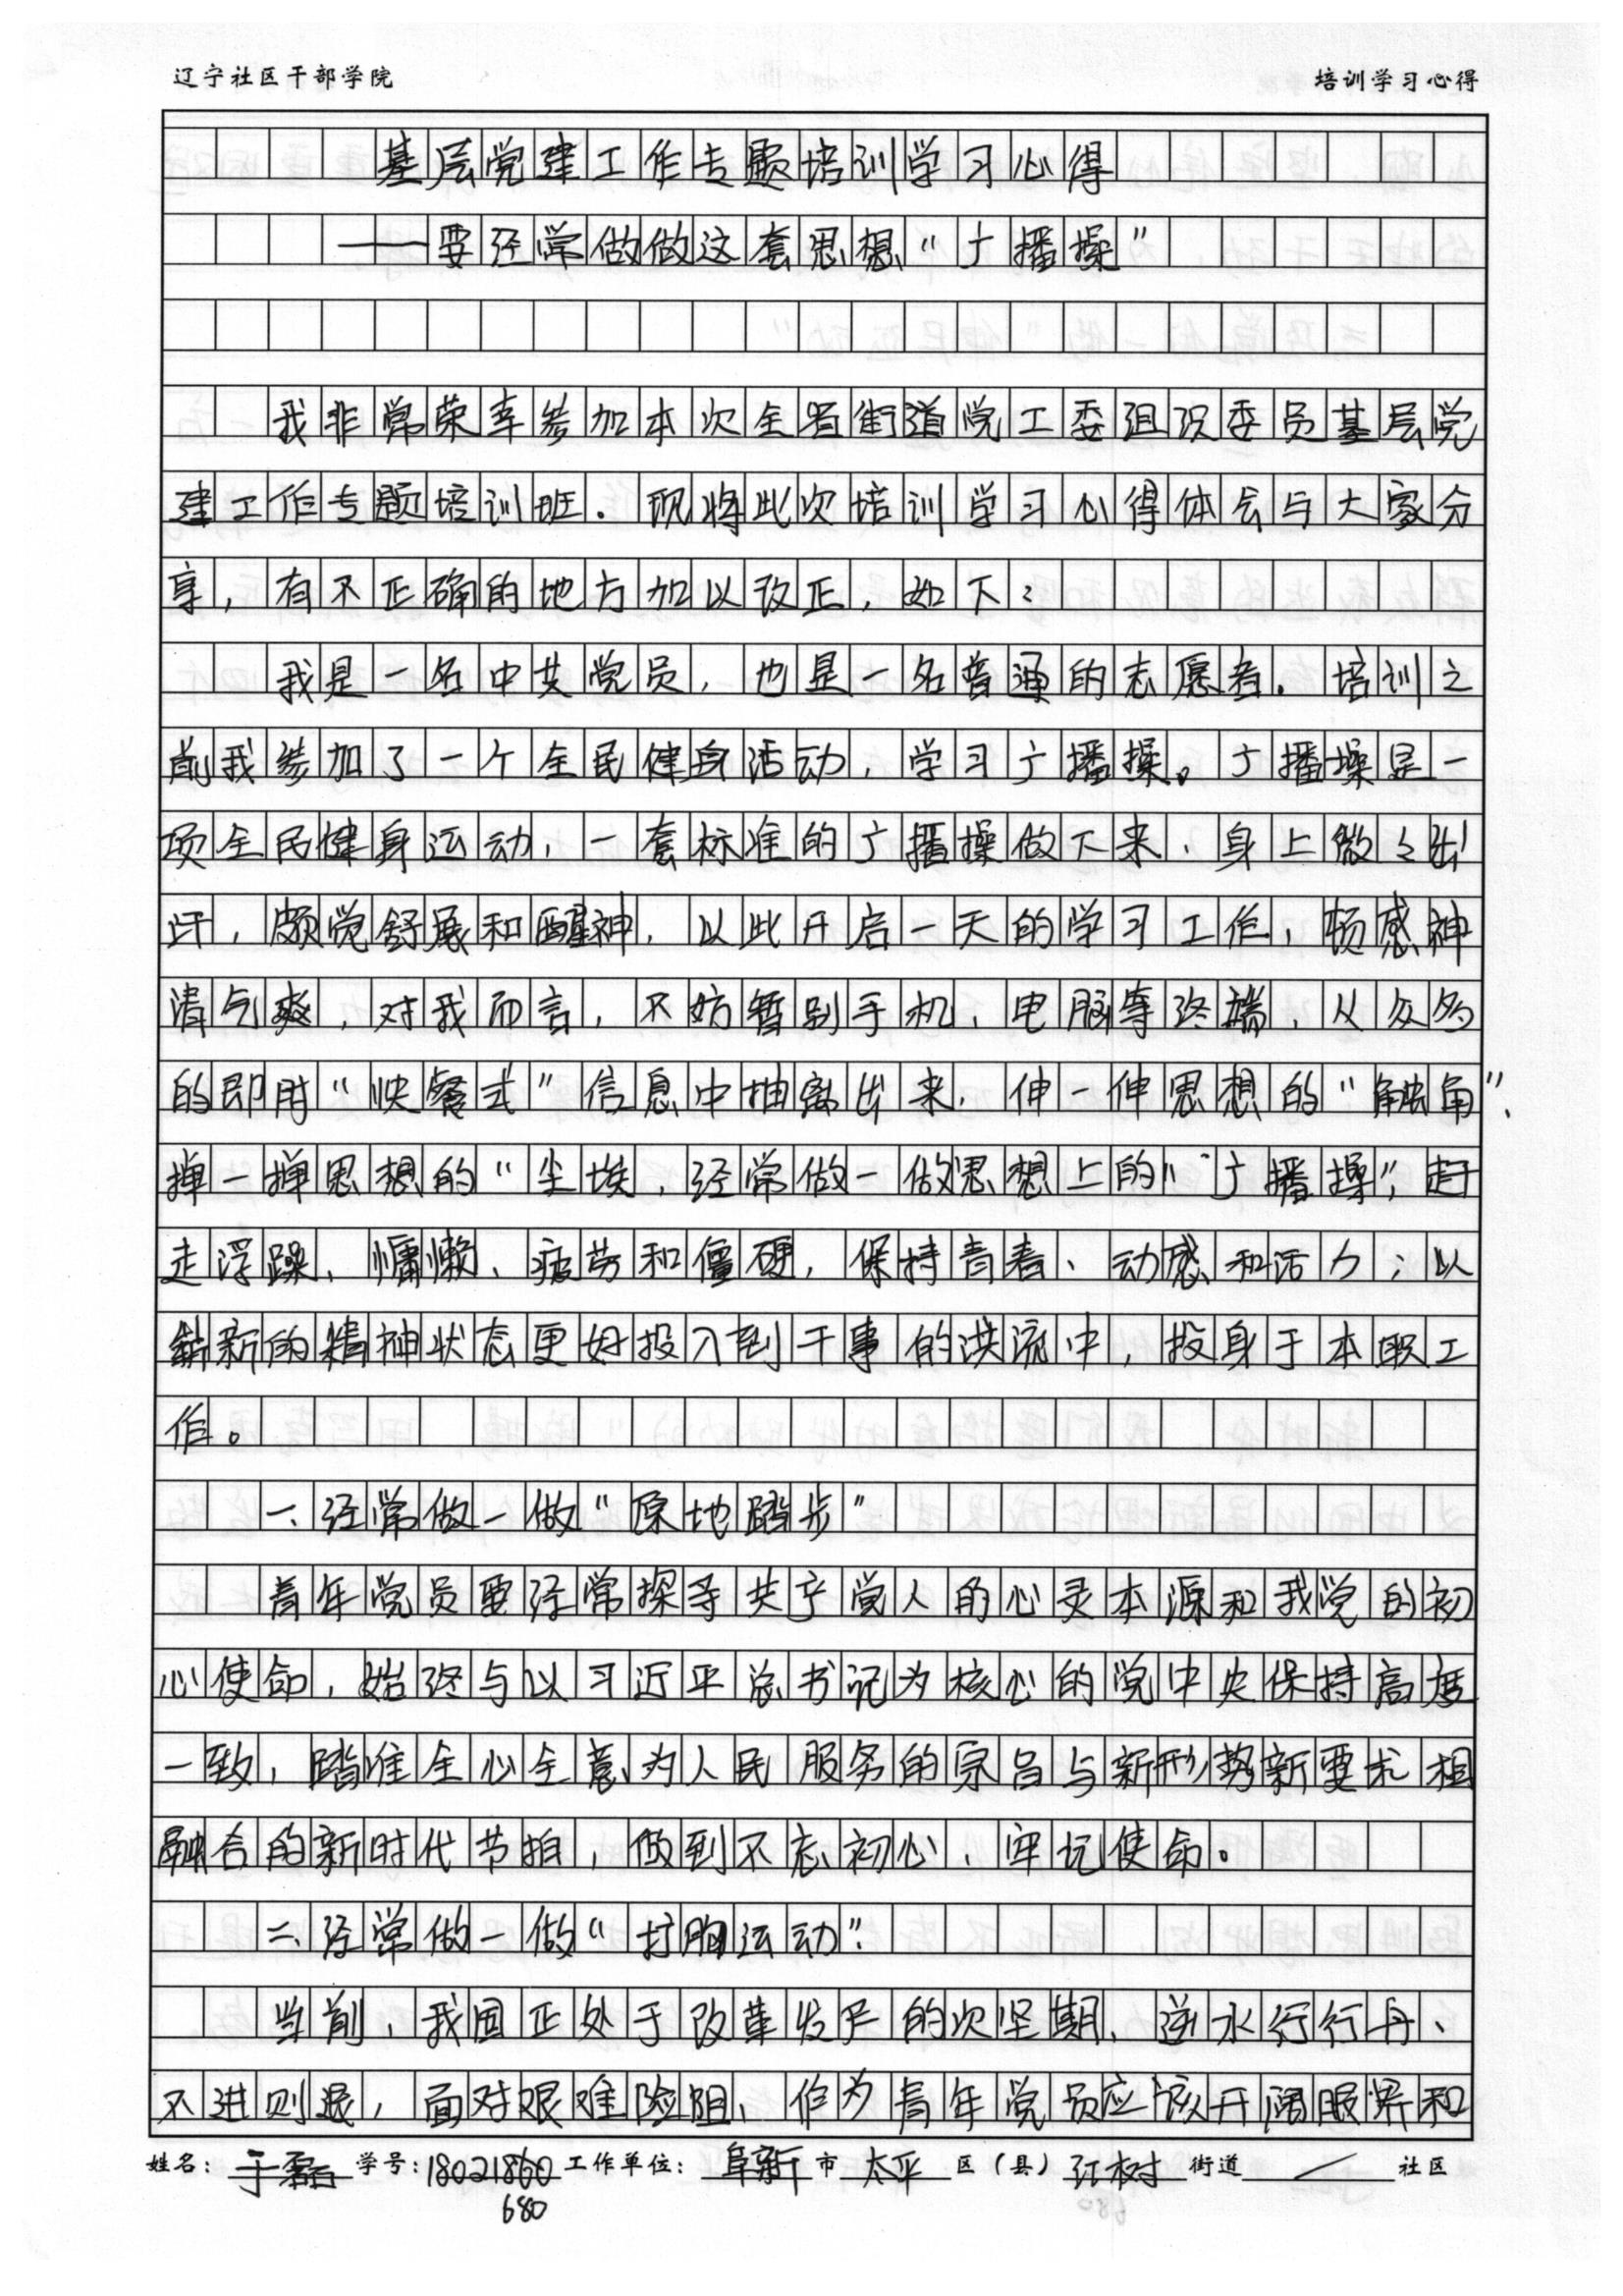 辽宁社区干部学院
培训学习心得
基层党建工作专题培训学习心得
——要经常做做这套思想“广播操”
我非常荣幸参加本次全省街道党工委组织委员基层党
建工作专题培训班.现将此次培训学习心得体会与大家分
享,有不正确的地方加以改正,如下:
我是一名中共党员,也是一名普通的志愿者.培训之
前我参加了一个全民健身活动,学习广播操。广播操是一
项全民健身运动,一套标准的广播操做下来,身上微々出
汗,颇觉舒展和醒神,以此开启一天的学习工作,顿感神
清气爽,对我而言,不妨暂别手机、电脑等终端,从众多
的即时“快餐式”信息中抽离出来,伸一伸思想的“触角”、
掸一掸思想的“尘埃,经常做一做思想上的“广播操”,赶
走浮躁、慵懒、疲劳和僵硬,保持青春、动感和活力;以
崭新的精神状态更好投入到干事的洪流中,投身于本职工
作。
一、经常做一做“原地踏步”
青年党员要经常探寻共产党人的心灵本源和我党的初
心使命,始终与以习近平总书记为核心的党中央保持高度
一致,踏准全心全意为人民服务的宗旨与新形势新要求相
融合的新时代节拍,做到不忘初心、牢记使命。
二、经常做一做“扩胸运动”.
当前,我国正处于改革发产的次坚期、逆水行行舟、
不进则退,面对艰难险阻、作为青年党员应该开阔眼界和
姓名:于磊 学号:18021860 工作单位:阜新市太平区(县)红树街道 / 社区
680